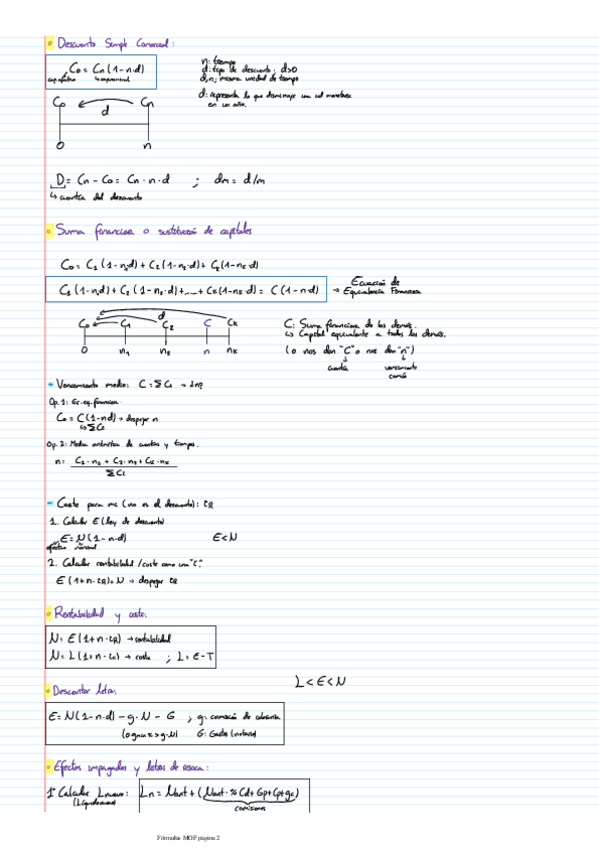 Descuento Simple Comercial:
C₀ = Cₙ (1 - n·d)
n: tiempo
d: tipo de descuento; d>0
d, n; misma unidad de tiempo
d: representa lo que disminuye una ud monetaria
en un año.
C₀ Cₙ
d
0 n
D = Cₙ - C₀ = Cₙ · n · d ; dm = d/m
↳ cuantía del descuento
Suma financiera o sustitución de capitales
C₀ = C₁ (1 - n₁·d) + C₂ (1 - n₂·d) + C₃ (1 - nₖ·d)
C₁ (1 - n₁d) + C₂ (1 - n₂·d) + ... + Cₖ (1 - nₖ·d) = C (1 - n·d) → Ecuación de
Equivalencia Financiera
d
C₀ C₁ C₂ C Cₖ
0 n₁ n₂ n nₖ
C: Suma financiera de los demás.
↳ Capital equivalente a todos los demás.
(o nos dan "C" o nos dan "n")
cuantía vencimiento
común
- Vencimiento medio: C = ΣCₛ → ¿n?
Op. 1: Ec. eq. financiera
C₀ = C (1 - n·d) → despejar n
↳ ΣCₛ
Op. 2: Media aritmética de cuantías y tiempos.
n = C₁·n₁ + C₂·n₂ + Cₖ·nₖ
ΣCₛ
- Coste para mi (no es el descuento): iR
1. Calcular E (ley de descuento)
E = N (1 - n·d) E < N
efectivo nominal
2. Calcular rentabilidad / coste como una "i".
E (1 + n·iR) = N → despejar iR
Rentabilidad y coste:
N = E (1 + n·iR) → rentabilidad
N = L (1 + n·ic) → coste ; L = E - T
L < E < N
Descontar letra:
E = N (1 - n·d) - g·N - G ; g: comisión de cobranza
(o gmin x > g·N) G: Gastos (notario)
Efectos impagados y letras de resaca:
1º Calcular Lnuevo: Ln = Nant + (Nant · % Cd + Gp + Cp + gc)
(Líquido nuevo) comisiones
Fórmulas MOF página 2